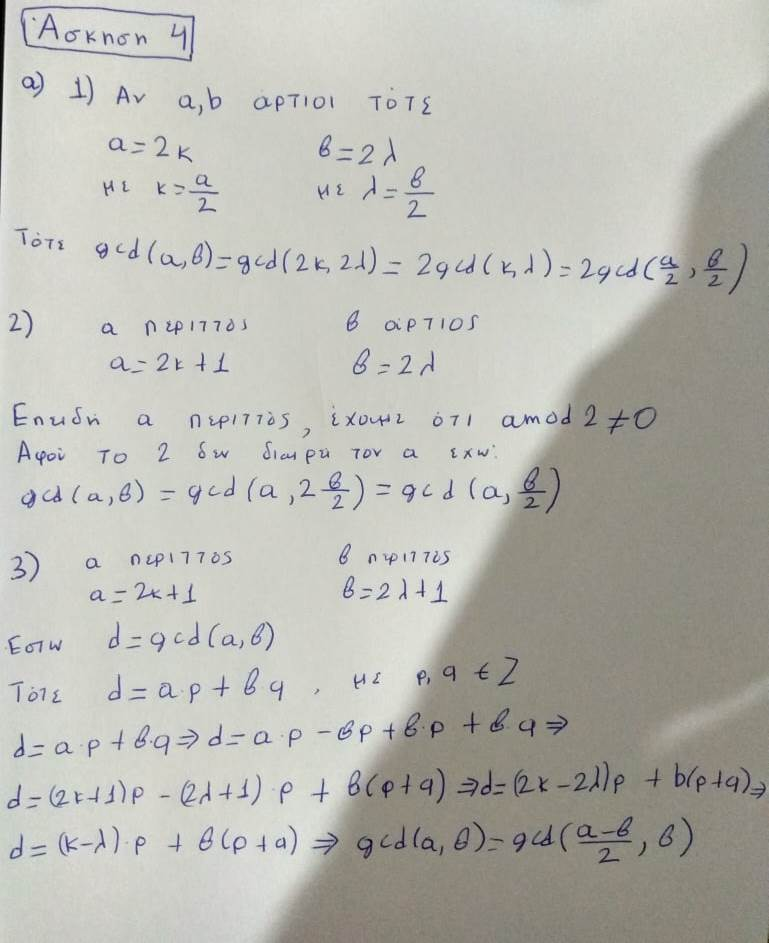 Άσκηση 4
α) 1) Αν a,b άρτιοι τότε
a=2κ β=2λ
με κ=a/2 με λ=β/2
Τότε gcd(a,β)=gcd(2κ,2λ)=2gcd(κ,λ)=2gcd(a/2,β/2)
2) a περιττός β άρτιος
a=2κ+1 β=2λ
Επειδή a περιττός, έχουμε ότι amod2≠0
Αφού το 2 δεν διαιρεί τον a έχω:
gcd(a,β)=gcd(a,2β/2)=gcd(a,β/2)
3) a περιττός β περιττός
a=2κ+1 β=2λ+1
Έστω d=gcd(a,β)
Τότε d=a·p+βq, με p,q∈Z
d=a·p+β·q⇒d=a·p-βp+β·p+β·q⇒
d=(2κ+1)p-(2λ+1)·p+β(p+q)⇒d=(2κ-2λ)p+b(p+q)⇒
d=(κ-λ)·p+β(p+q)⇒gcd(a,β)=gcd(a-β/2,β)